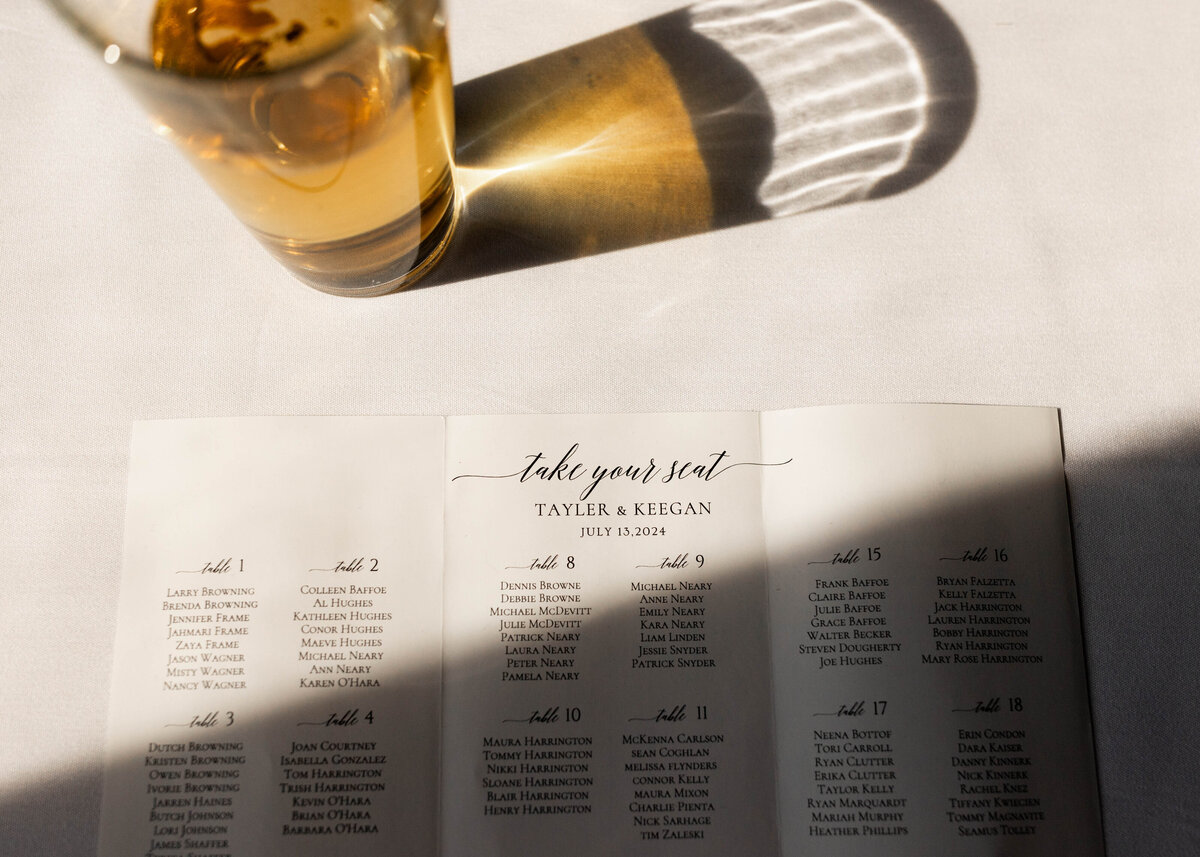 take your seat
TAYLER & KEEGAN
JULY 13,2024
table 1
LARRY BROWNING
BRENDA BROWNING
JENNIFER FRAME
JAHMARI FRAME
ZAYA FRAME
JASON WAGNER
MISTY WAGNER
NANCY WAGNER
table 2
COLLEEN BAFFOE
AL HUGHES
KATHLEEN HUGHES
CONOR HUGHES
MAEVE HUGHES
MICHAEL NEARY
ANN NEARY
KAREN O'HARA
table 3
DUTCH BROWNING
KRISTEN BROWNING
OWEN BROWNING
IVORIE BROWNING
JARREN HAINES
BUTCH JOHNSON
LORI JOHNSON
JAMES SHAFFER
table 4
JOAN COURTNEY
ISABELLA GONZALEZ
TOM HARRINGTON
TRISH HARRINGTON
KEVIN O'HARA
BRIAN O'HARA
BARBARA O'HARA
table 8
DENNIS BROWNE
DEBBIE BROWNE
MICHAEL MCDEVITT
JULIE MCDEVITT
PATRICK NEARY
LAURA NEARY
PETER NEARY
PAMELA NEARY
table 9
MICHAEL NEARY
ANNE NEARY
EMILY NEARY
KARA NEARY
LIAM LINDEN
JESSIE SNYDER
PATRICK SNYDER
table 10
MAURA HARRINGTON
TOMMY HARRINGTON
NIKKI HARRINGTON
SLOANE HARRINGTON
BLAIR HARRINGTON
HENRY HARRINGTON
table 11
MCKENNA CARLSON
SEAN COGHLAN
MELISSA FLYNDERS
CONNOR KELLY
MAURA MIXON
CHARLIE PIENTA
NICK SARHAGE
TIM ZALESKI
table 15
FRANK BAFFOE
CLAIRE BAFFOE
JULIE BAFFOE
GRACE BAFFOE
WALTER BECKER
STEVEN DOUGHERTY
JOE HUGHES
table 16
BRYAN FALZETTA
KELLY FALZETTA
JACK HARRINGTON
LAUREN HARRINGTON
BOBBY HARRINGTON
RYAN HARRINGTON
MARY ROSE HARRINGTON
table 17
NEENA BOTTOF
TORI CARROLL
RYAN CLUTTER
ERIKA CLUTTER
TAYLOR KELLY
RYAN MARQUARDT
MARIAH MURPHY
HEATHER PHILLIPS
table 18
ERIN CONDON
DARA KAISER
DANNY KINNERK
NICK KINNERK
RACHEL KNEZ
TIFFANY KWIECIEN
TOMMY MAGNAVITE
SEAMUS TOLLEY